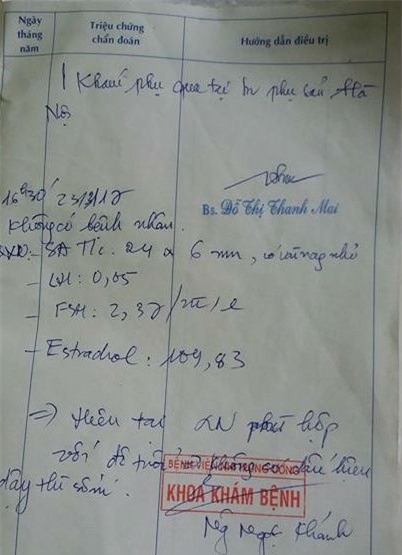 Ngày tháng năm
Triệu chứng chẩn đoán
Hướng dẫn điều trị
Khám phụ qua tại BV phụ sản Hà
Nội
Bs. Đỗ Thị Thanh Mai
16h30
Không có bệnh nhân.
SA T/c: 24 x 6 mm, có nang nhỏ
- LH: 0,05
- FSH: 2,3
- Estradiol: 109,83
=> Hiện tại XN phù hợp
với không có dấu hiệu
dậy thì sớm.
BỆNH VIỆN NHI TRUNG ƯƠNG
KHOA KHÁM BỆNH
Ng Ngọc Khánh